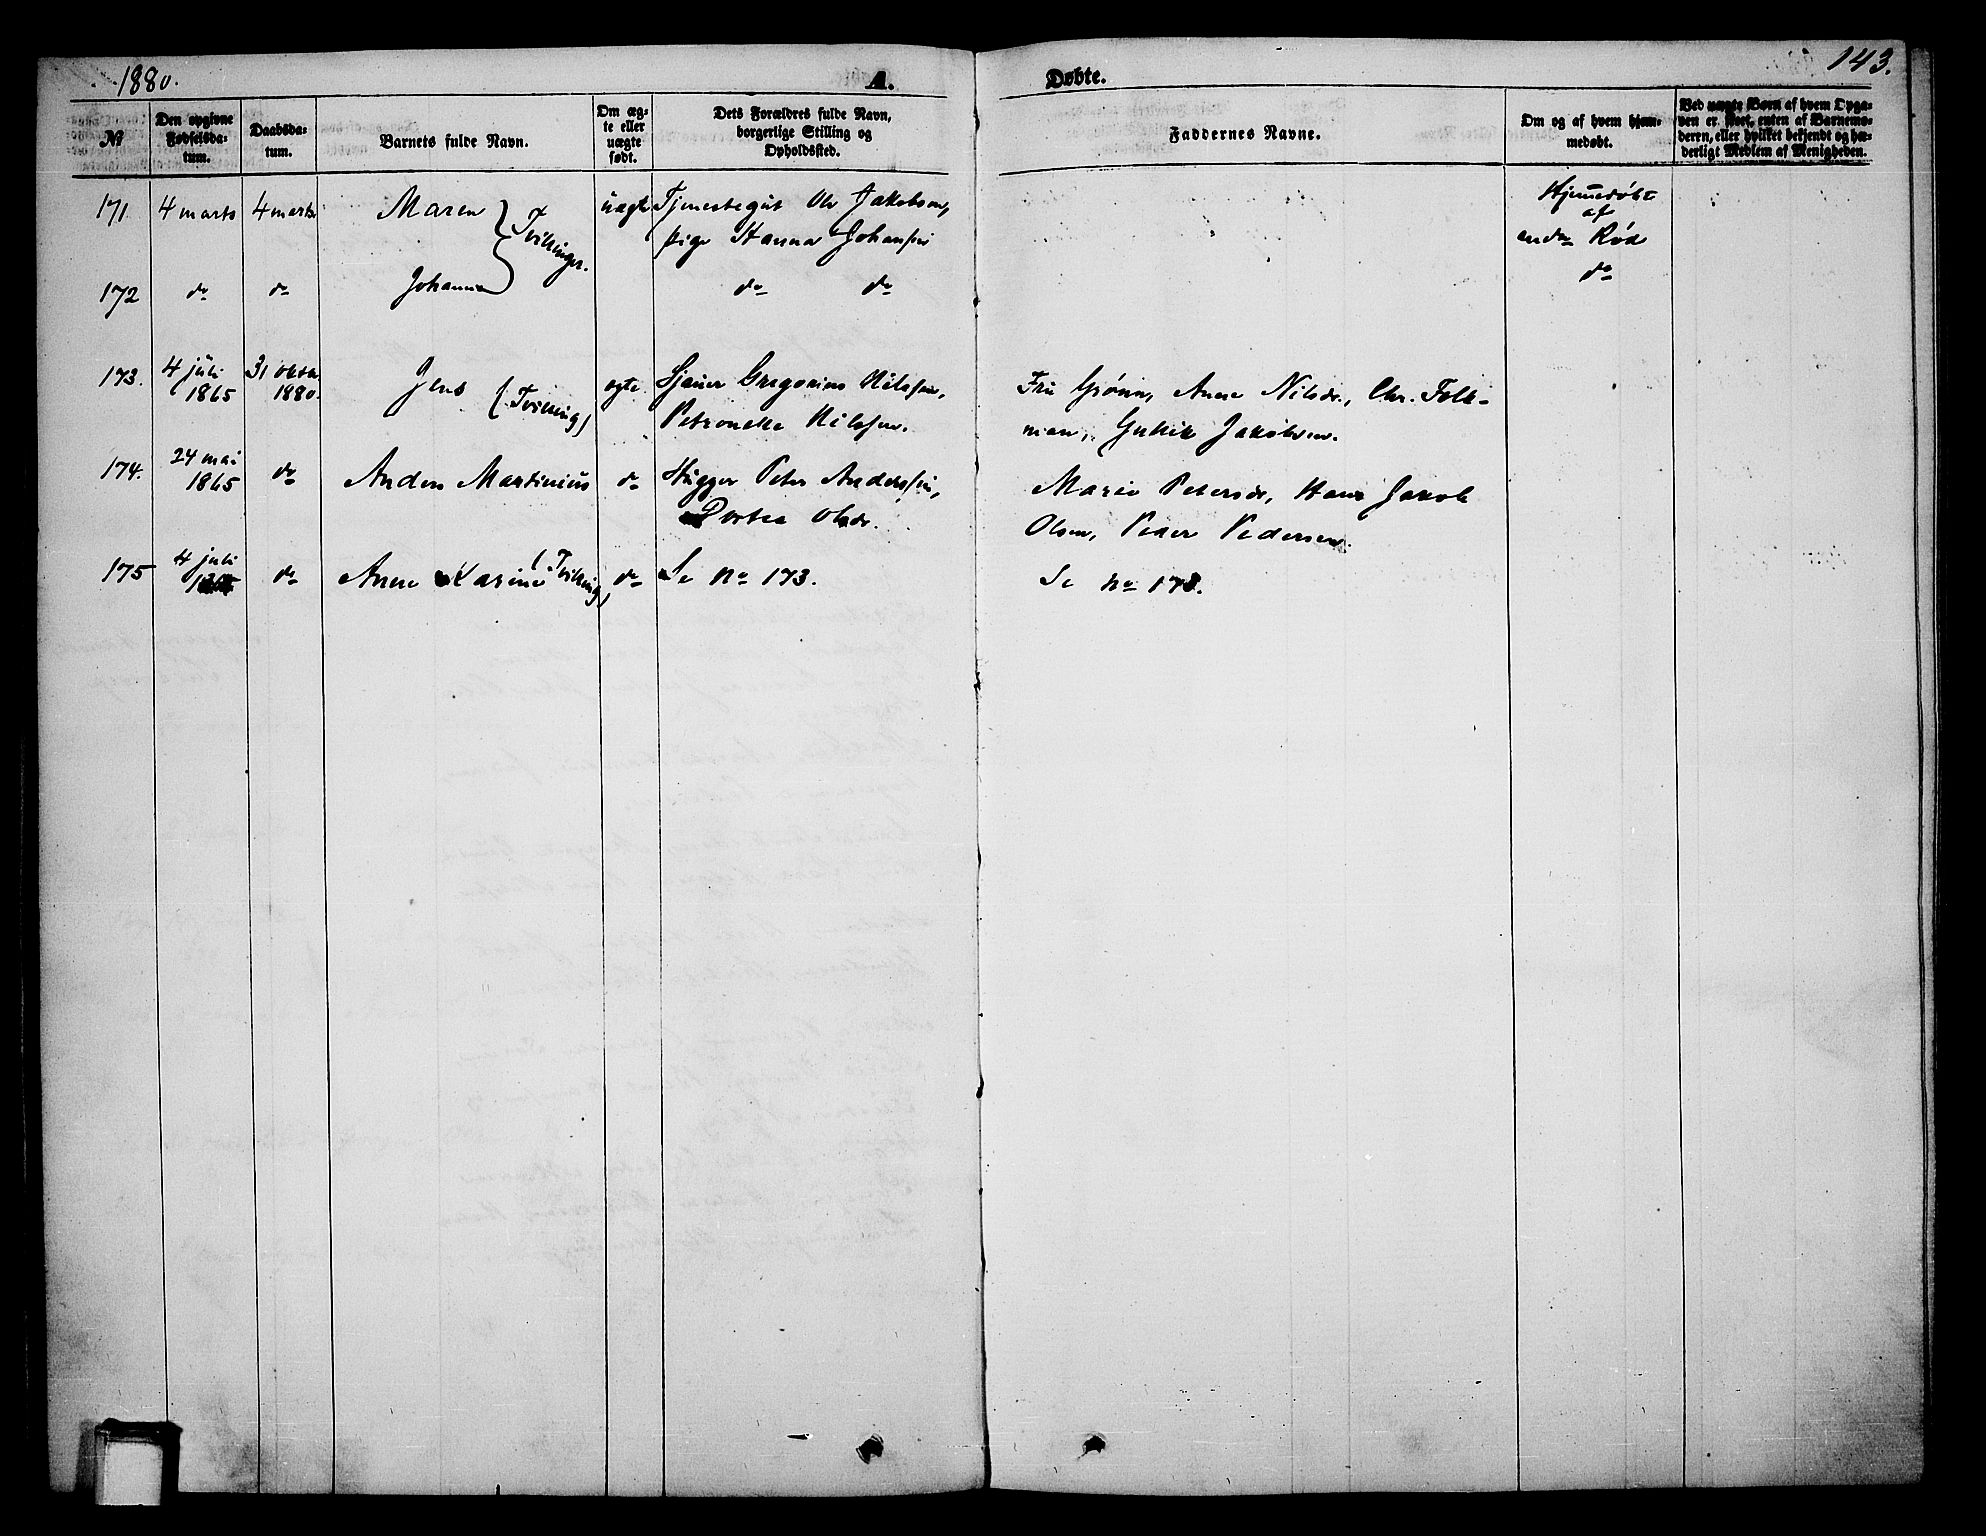 1880.
A.
Døbte.
143.
№
Den opgivne Fødselsdatum.
Daabsdatum.
Barnets fulde Navn.
Om ægte eller uægte født.
Dets Forældres fulde Navn, borgerlige Stilling og Opholdssted.
Faddernes Navne.
Om og af hvem hjemmedøbt.
Ved uægte Børn af hvem Opgaven er skeet, enten af Barnemoderen, eller hvilket bekjendt og hæderligt Medlem af Menigheden.
171. 4 marts 4 marts Maren } Tvillinger. uægte Tjenestegut Ole Jakobsen, Hjemmedøbt
pige Hanna Johansen af
Rød
172 do do Johanna do do do
173. 4 juli 1865 31 oktbr. 1880. Jens (Tvilling) ægte Sjauer Gregorius Nilssen, Fru Grønn, Anne Nilsdr., Chr. Folk-
Petronelle Nilssen. man, Gullik Jakobsen.
174. 24 mai 1865 do Anders Martinius do Hugger Peter Anderssen, Marie Petersdr, Hans Jakob
Dortea Olsdr. Olsen, Peder Pedersen.
175 4 juli do Anne Karine (Tvilling) do Se no 173. Se no 173.